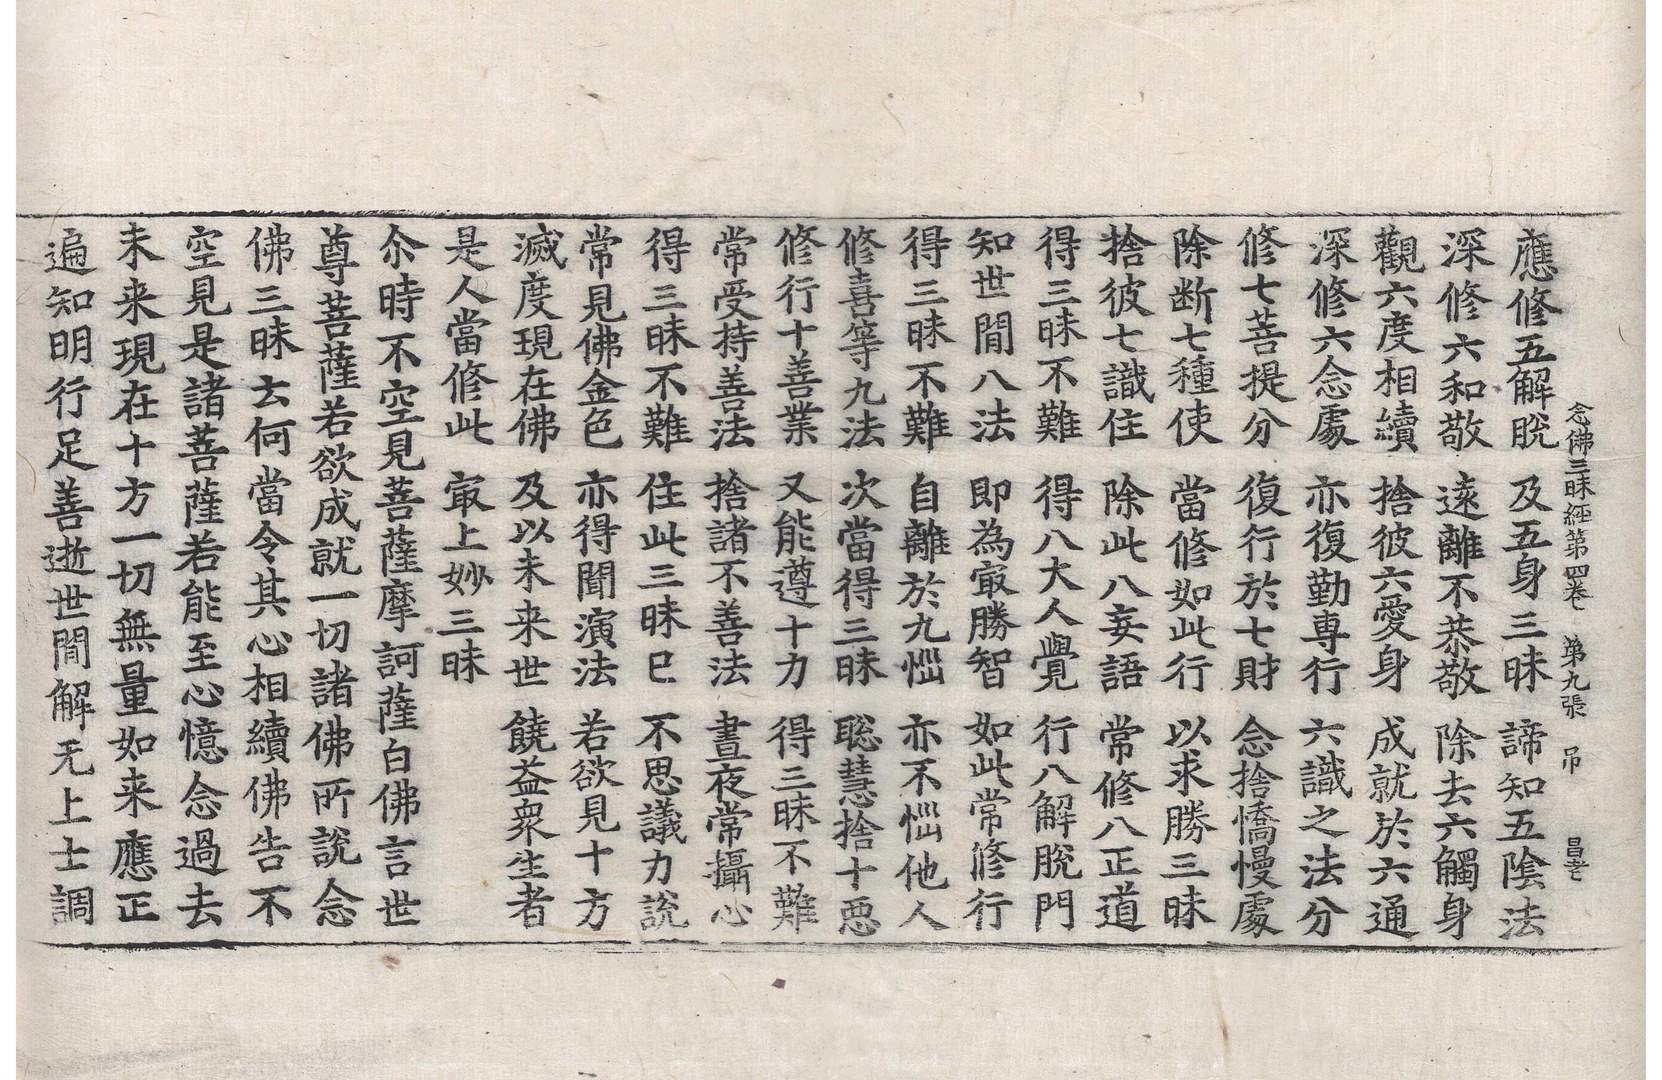 念佛三昧經第四卷 第九張 吊
應修五解脫 及五身三昧 諦知五陰法
深修六和敬 遠離不恭敬 除去六觸身
觀六度相續 捨彼六愛身 成就於六通
深修六念處 亦復勤專行 六識之法分
修七菩提分 復行於七財 念捨憍慢處
除断七種使 當修如此行 以求勝三昧
捨彼七識住 除此八妄語 常修八正道
得三昧不難 得八大人覺 行八解脫門
知世間八法 即為㝡勝智 如此常修行
得三昧不難 自離於九惱 亦不惱他人
修喜等九法 次當得三昧 聡慧捨十惡
修行十善業 又能遵十力 得三昧不難
常受持善法 捨諸不善法 晝夜常攝心
得三昧不難 住此三昧已 不思議力說
常見佛金色 亦得聞演法 若欲見十方
滅度現在佛 及以未来世 饒益衆生者
是人當修此 㝡上妙三昧
尒時不空見菩薩摩訶薩白佛言世
尊菩薩若欲成就一切諸佛所說念
佛三昧云何當令其心相續佛告不
空見是諸菩薩若能至心憶念過去
未来現在十方一切無量如来應正
遍知明行足善逝世間解无上士調